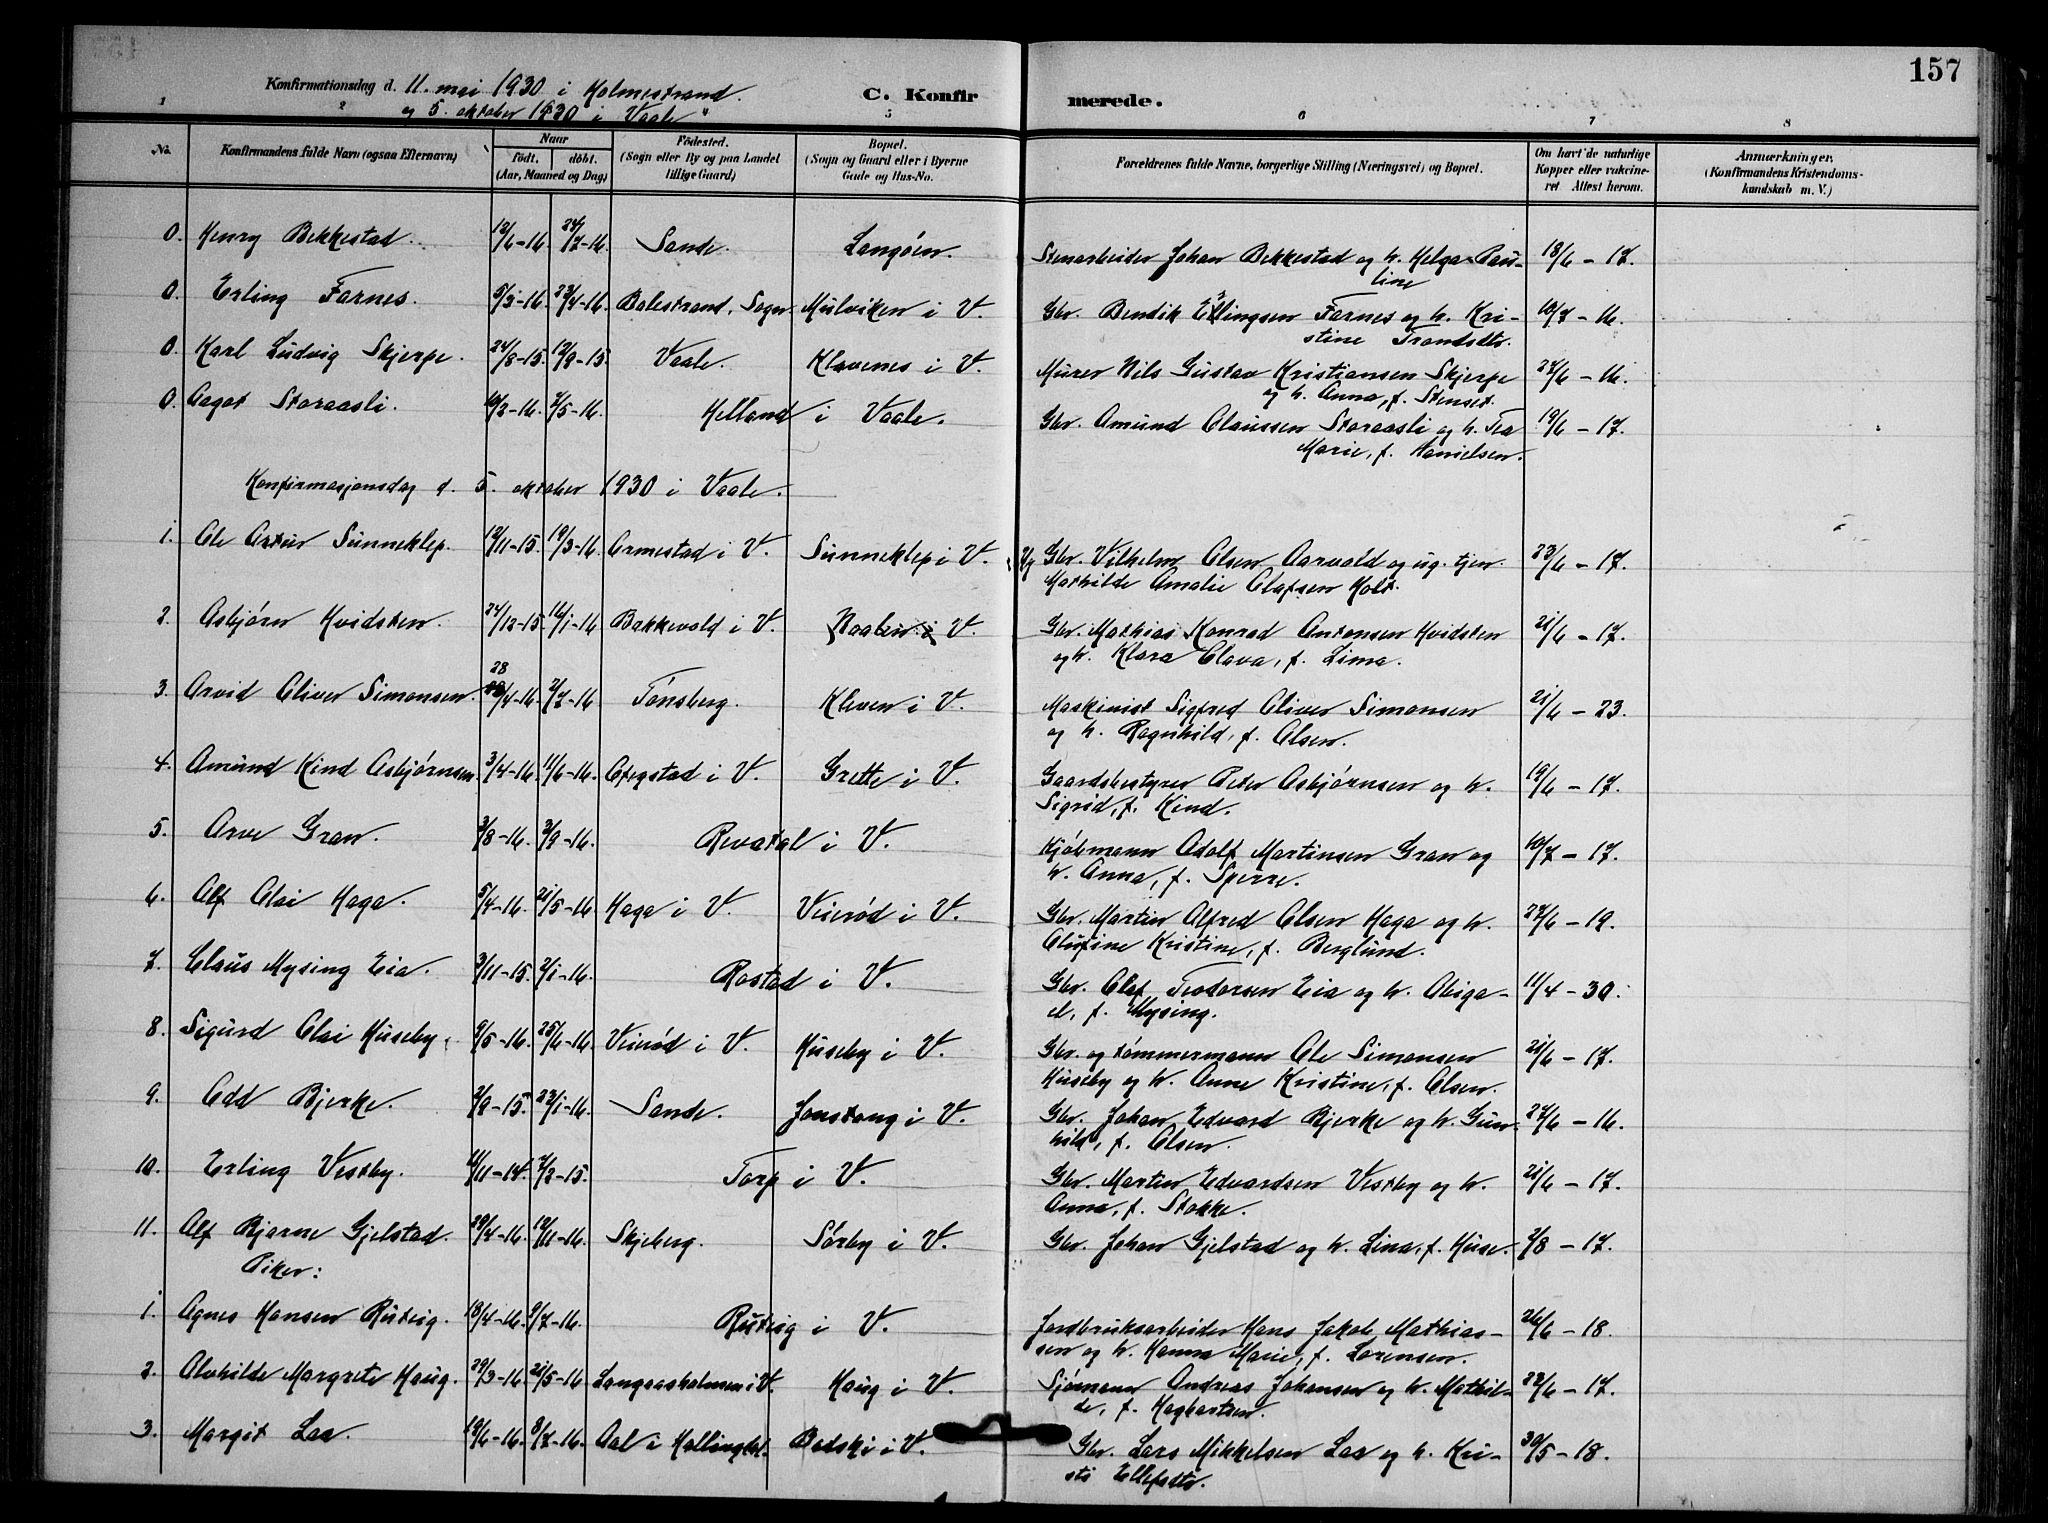 157
Konfirmationsdag d. 11. mai 1930 i Holmestrand.
og 5. oktober 1930 i Vaale"
C. Konfirmerede.
1 2 5 6 7 8
No. Konfirmandens fulde Navn (ogsaa Efternavn) Naar født. døbt. (Aar, Maaned og Dag) Fødested. (Sogn eller By og paa Landet tillige Gaard) Bopæl. (Sogn og Gaard eller i Byerne Gade og Hus-No. Forældrenes fulde Navne, borgerlige Stilling (Næringsvei) og Bopæl. Om havt de naturlige Kopper eller vakcineret Attest herom. Anmærkninger. (Konfirmandens Kristendomskundskab m. V.)
0. Henry Bekkestad. 13/6-16. 24/7-16. Sande. Langöen. Stenarbeider Johan Bekkestad og h. Helga Pau-
line 18/6 - 17.
0. Erling Farnes. 5/3-16. 23/4-16. Balestrand, Sogn. Mulviken i V. Gbr. Bendik Ellingsen Farnes og h. Kri-
stine Trondsdtr. 10/7 - 16.
0. Karl Ludvig Skjerpe. 24/8-15. 12/9-15. Vaale. Klavenes i V. Murer Nils Gustav Kristiansen Skjerpe
og h. Anna, f. Stenset. 27/6 - 16.
0. Aagot Storaasli. 10/3-16. 7/5-16. Helland i Vaale. Gbr. Amund Olaussen Storaasli og h. Tea
Marie, f. Danielsen. 19/6 - 17.
Konfirmasjonsdag d. 5. oktober 1930 i Vaale.
1. Ole Artur Sunneklep. 12/11-15. 19/3-16. Ormestad i V. Sunneklep i V. Ug Gbr. Vilhelm Olsen Aarvold og ug. tjen.
Mathilde Amalie Olafsen Holt. 23/6 - 17.
2. Asbjörn Hvidsten. 24/12-15. 16/1-16 Bakkevold i V. Naalen i V. Gbr. Mathias Konrad Antonsen Hvidsten
og h. Klara Olava, f. Lima. 21/6 - 17.
3. Arvid Oliver Simonsen. 28/4-16. 2/7-16 Tönsberg. Kleven i V. Maskinist Sigfred Oliver Simonsen
og h. Ragnhild, f. Olsen. 21/6 - 23.
4. Amund Kind Asbjörnsen 3/4-16. 11/6-16. Ofegstad i V. Grette i V. Gaardsbestyrer Peter Asbjörnsen og h.
Sigrid, f. Kind. 19/6 - 17.
5. Arve Gran. 3/8-16. 3/9-16. Revetal i V. Kjöbmann Adolf Martinsen Gran og
h. Anna, f. Sperre. 10/7 - 17.
6. Alf Olai Haga. 5/4-16. 21/5-16 Haga i V. Veieröd i V. Gbr. Martin Alfred Olsen Haga og h.
Olufine Kristine, f. Berglund. 27/6 - 19.
7. Claus Mysing Eia. 3/11-15. 2/1-16. Rostad i V. Gbr. Olaf Teodorsen Eia og h. Abiga-
el, f. Mysing. 11/4 - 30.
8. Sigurd Olai Huseby. 9/5-16. 25/6-16. Veieröd i V. Huseby i V. Gbr. og tömmermann Ole Simonsen
Huseby og h. Anne Kristine, f. Olsen. 21/6 - 17.
9. Odd Bjerke. 2/9-15. 23/1-16. Sande. Jonstang i V. Gbr. Johan Edvard Bjerke og h. Gun-
hild, f. Olsen. 27/6 - 16.
10. Erling Vestby. 11/11-14. 7/2-15. Torp i V. Gbr. Martin Edvardsen Vestby og h.
Anna, f. Stokke. 21/6 - 17.
11. Alf Bjarne Gjelstad. 29/4-16. 12/11-16. Skjeberg. Sörby i V. Gbr. Johan Gjelstad og h. Lina, f. Huse. 7/8 - 17.
Piker:
1. Agnes Hansen Rustig. 18/4-16. 9/7-16. Rustig i V. Jordbruksarbeider Hans Jakob Mathias-
sen og h. Hanna Marie, f. Lorensen. 26/6 - 18.
2. Alvhilde Margrete Haug. 29/3-16. 21/5-16 Langaasholmen i V. Haug i V. Sjömann Andreas Johansen og h. Mathil-
de, f. Hagbartsen. 22/6 - 17.
3. Margit Laa. 19/6-16. 8/7-16. Aal i Hallingdal. Botski i V. Gbr. Lars Mikkelsen Laa og h. Kri-
sti Ellefsdtr. 30/5 - 18.